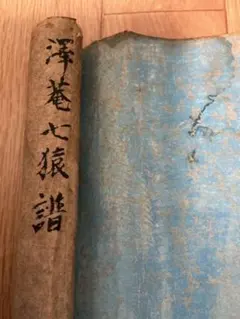 澤菴七猿譜